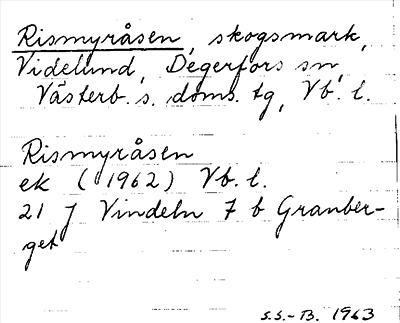 Rismyråsen, skogsmark,
Videlund, Degerfors sn,
Västerb. s. doms. tg, Vb. l.
Rismyråsen
ek (1962) Vb. l.
21 J Vindeln 7 b Granber-
get
S.S.-B. 1963